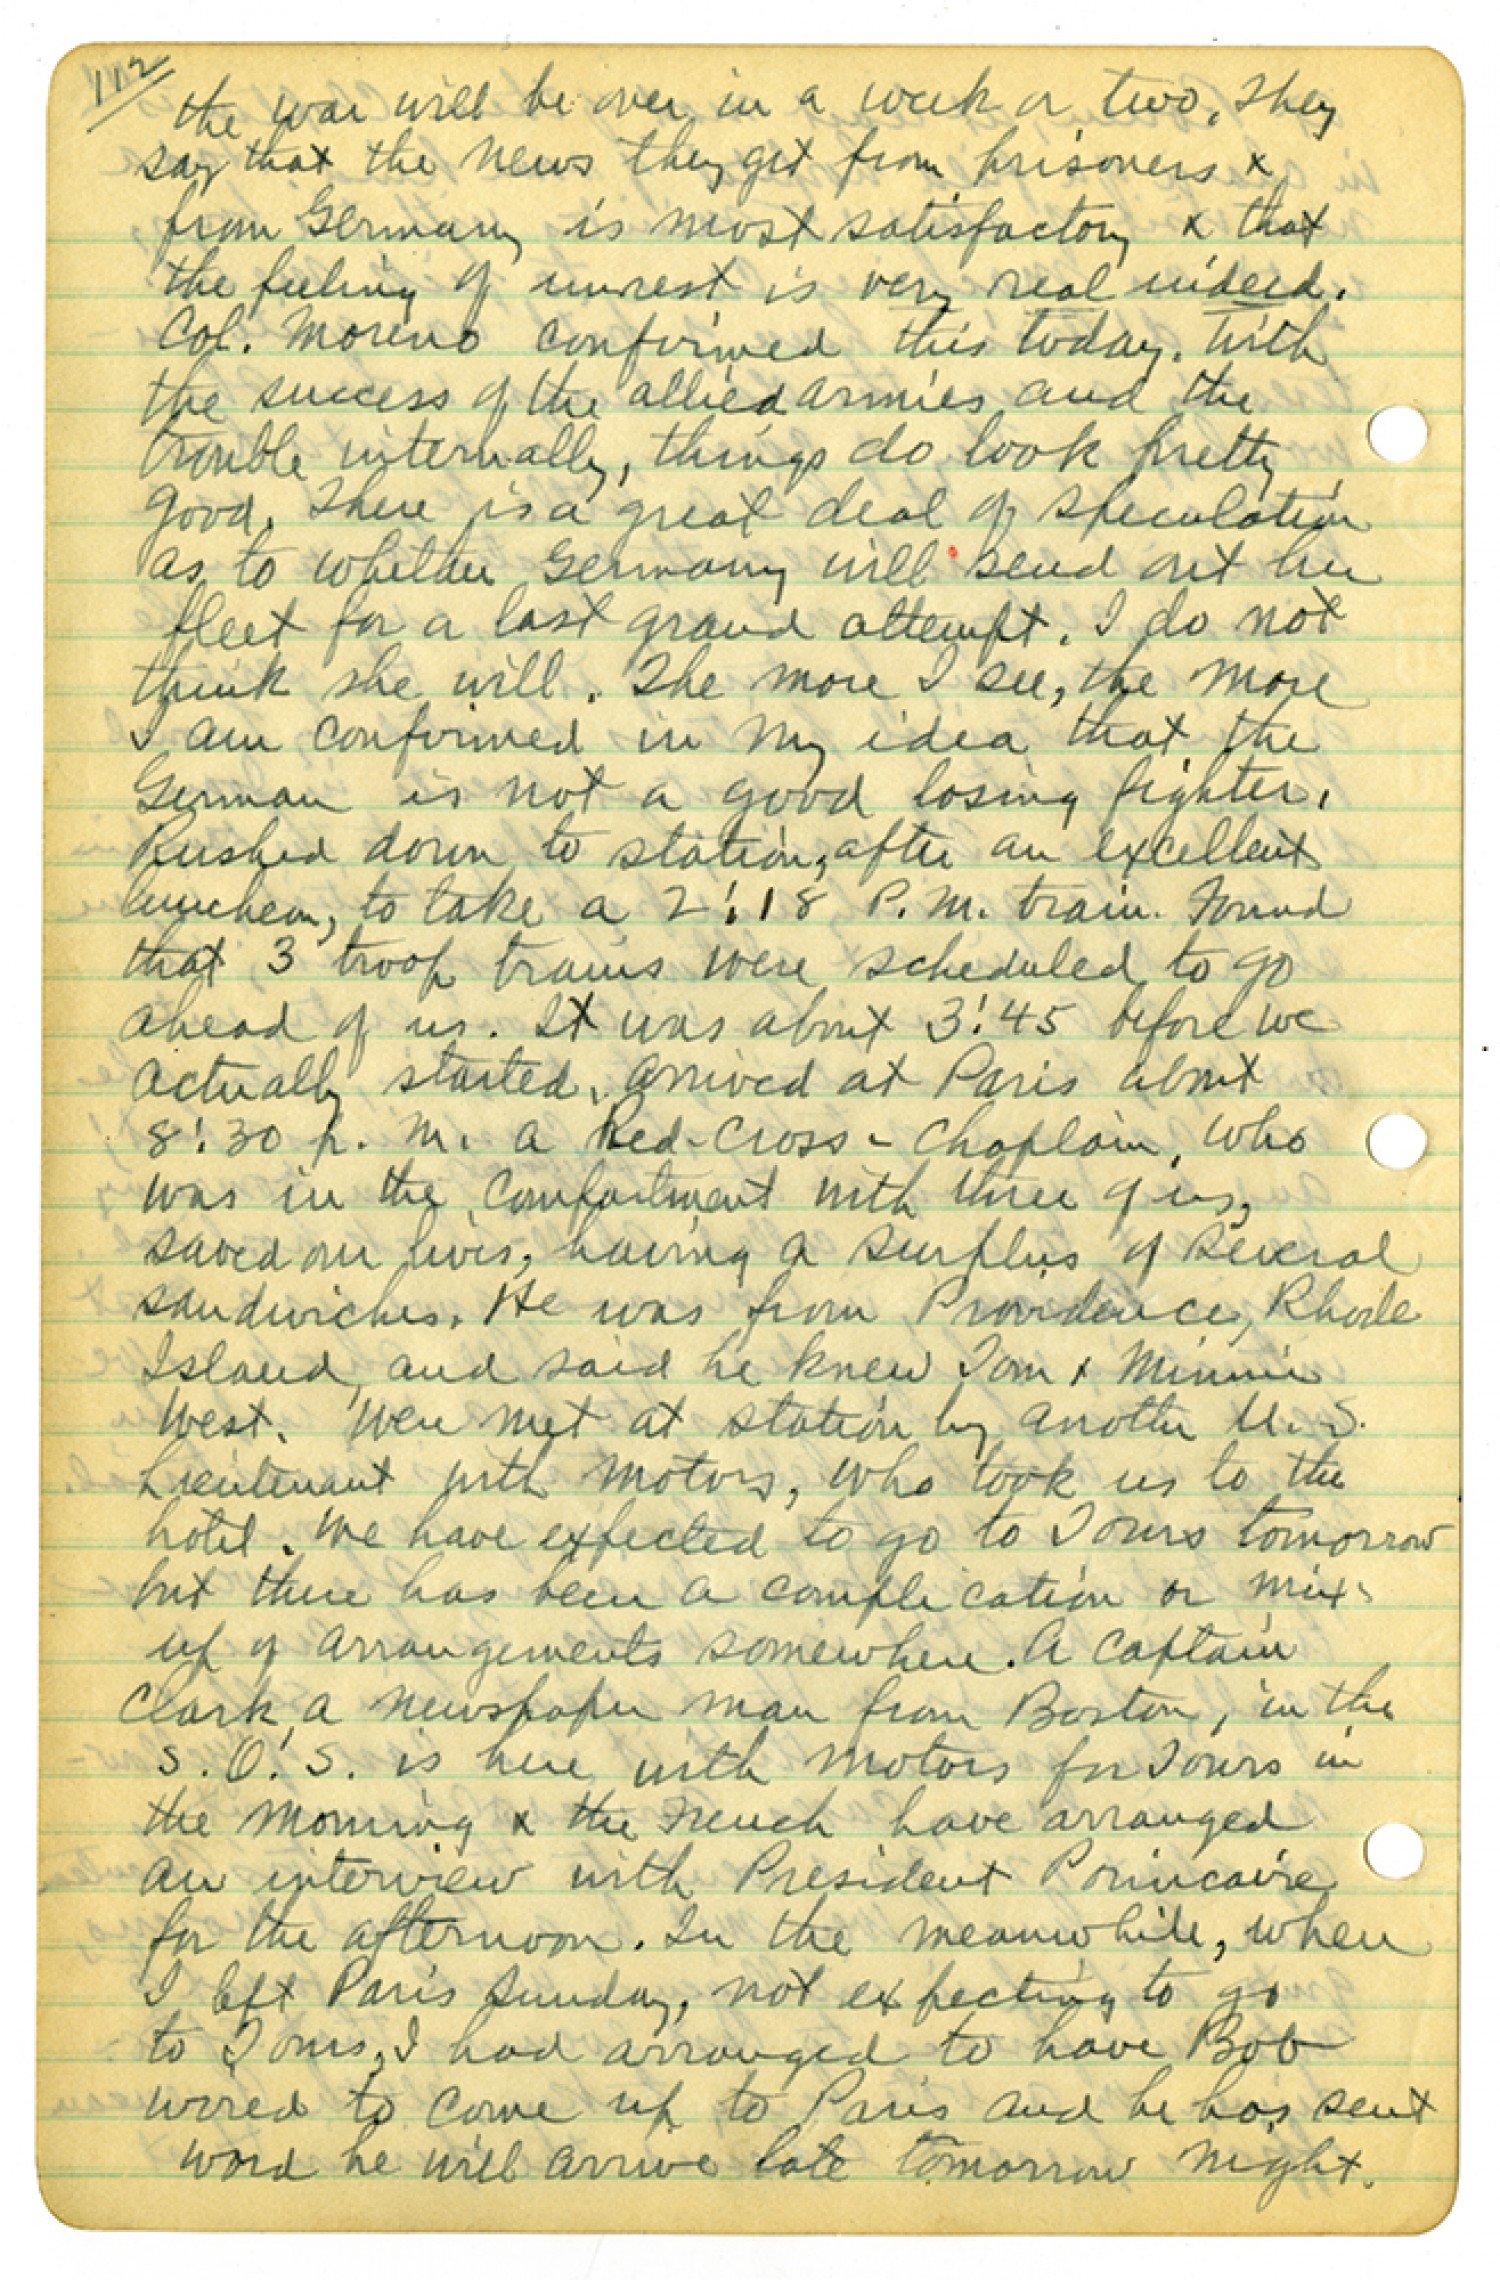 112
the war will be over in a week or two. They
say that the news they get from prisoners x
from Germany is most satisfactory x that
the feeling of unrest is very real indeed.
Col. Moreno confirmed this today. With
the success of the allied armies and the
trouble internally, things do look pretty
good. There is a great deal of speculation
as to whether Germany will send out her
fleet for a last grand attempt. I do not
think she will. The more I see, the more
I am confirmed in my idea that the
German is not a good losing fighter.
Rushed down to station, after an excellent
luncheon, to take a 2:18 P.M. train. Found
that 3 troop trains were scheduled to go
ahead of us. It was about 3:45 before we
actually started. Arrived at Paris about
8:30 p. m. A Red-Cross-Chaplain, who
was in the compartment with three of us,
saved our lives, having a surplus of several
sandwiches. He was from Providence, Rhode
Island, and said he knew Tom x Minnie
West. Were met at station by another U.S.
Lieutenant with motors, who took us to the
hotel. We have expected to go to Tours tomorrow
but there has been a complication or mix-
up of arrangements somewhere. A Captain
Clark, a newspaper man from Boston, in the
S.O.S. is here with motors for Tours in
the morning x the French have arranged
an interview with President Poincaire
for the afternoon. In the meanwhile, when
I left Paris Sunday, not expecting to go
to Tours, I had arranged to have Bob
wired to come up to Paris and he has sent
word he will arrive late tomorrow night.